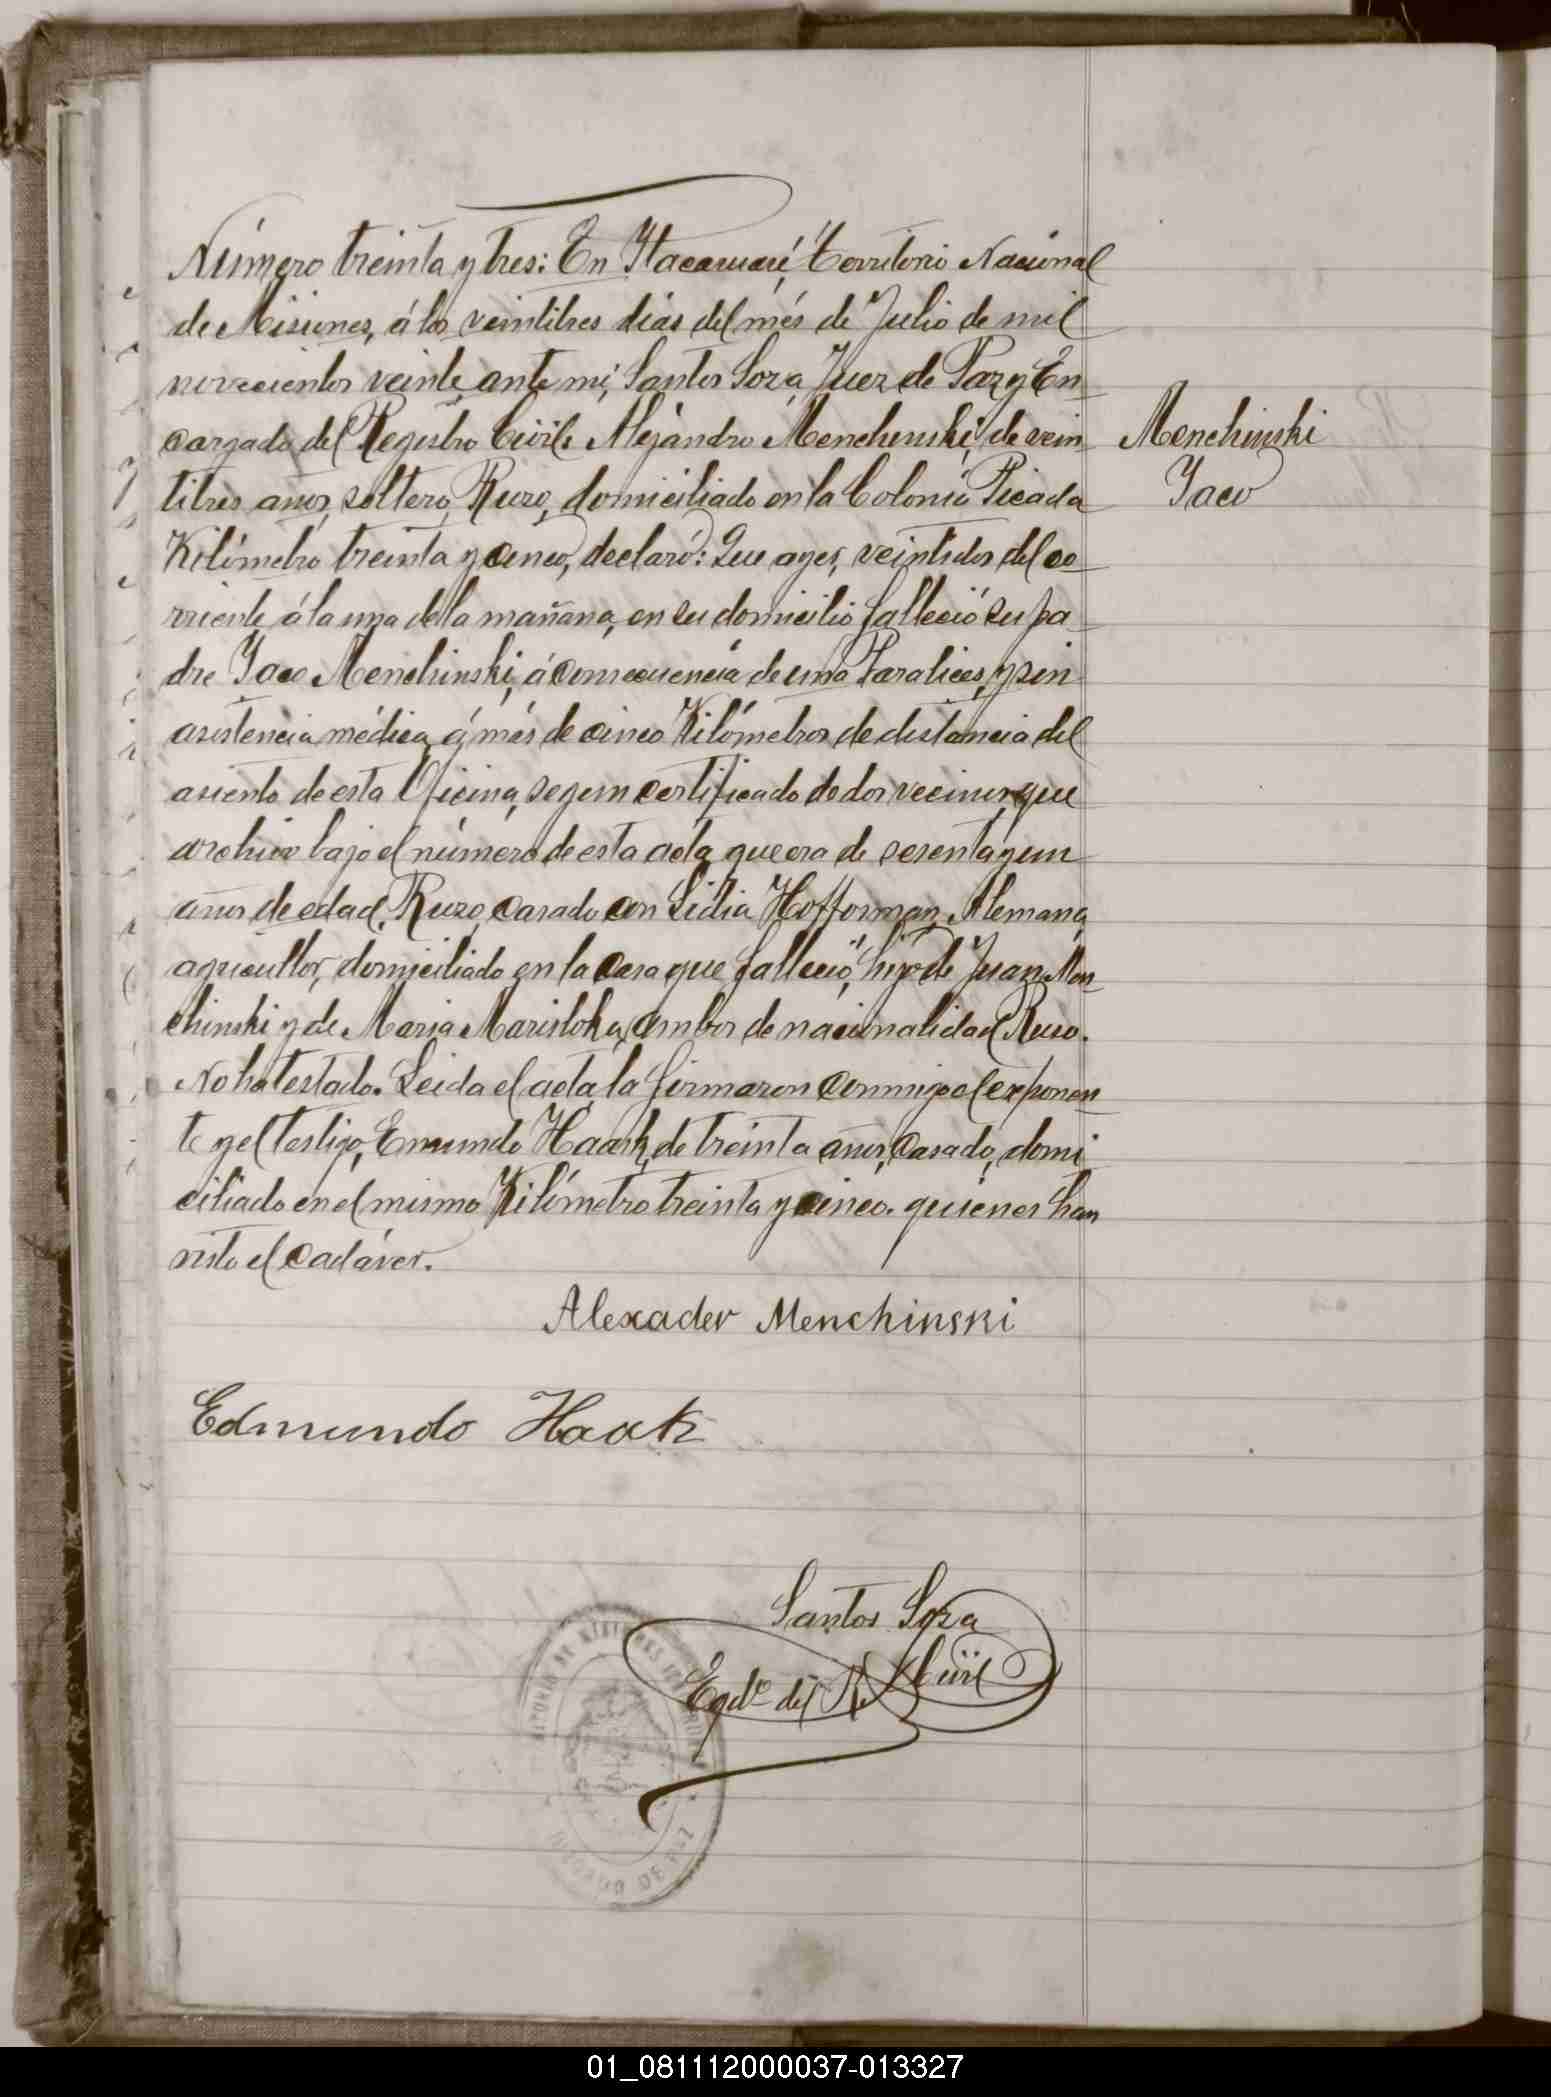 Número treinta y tres: En Itacaruaré, Territorio Nacional
de Misiones, á los veintitres dias del més de Julio de mil
novecientos veinte, ante mi, Santos Soza, Juez de Paz y En-
cargado del Registro Civil: Alejandro Menchinski, de vein-
titres años, soltero, Ruzo, domiciliado en la Colonia Picada
Kilómetro treinta y cinco, declaró: Que ayer, veintidos del co-
rriente á la una de la mañana, en su domicilio falleció su pa-
dre Jaco Menchinski, á consecuencia de una Paralices, y sin
asistencia médica, á más de cinco Kilómetros de distancia del
asiento de esta Oficina, segun certificado de dos vecinos, que
archivo bajo el número de esta acta, que era de sesenta y un
años de edad, Ruzo, casado con Lidia Hofforman, Alemana,
agricultor, domiciliado en la casa que falleció, hijo de Juan Men-
chinski y de Maria Marisloka, ambos de nacionalidad Ruso.
No ha testado. Leida el acta, la firmaron conmigo el exponen-
te y el testigo, Emundo Haack, de treinta años, casado, domi
ciliado en el mismo Kilómetro treinta y cinco. quienes han
visto el cadáver.
Menchinski
Jaco
Alexader Menchinski
Edmundo Haak
Santos Soza
Egdo del R. Civil
01_081112000037-013327